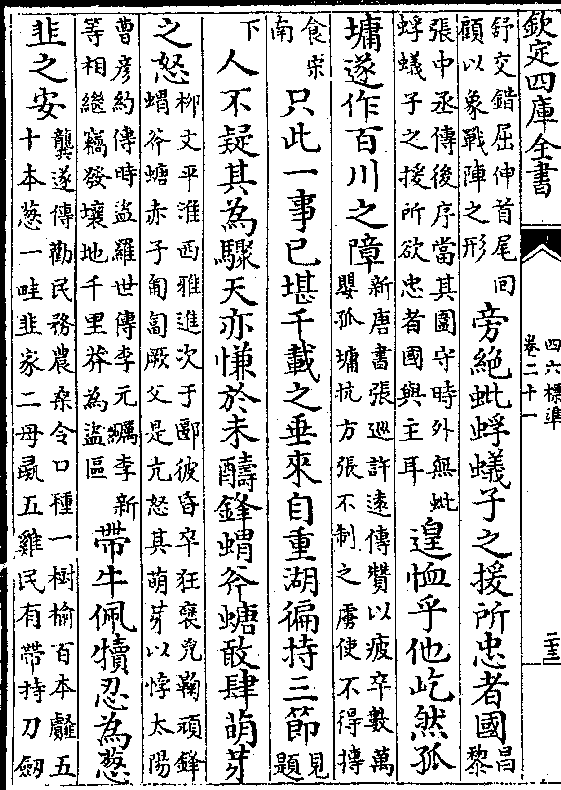 欽定四庫全書
四六標準
卷二十一
二十三
舒交錯屈伸首尾回
顧以象戰陣之形
旁絶蚍蜉蟻子之援所忠者國
昌
黎
張中丞傳後序當其圍守時外無蚍
蜉蟻子之援所欲忠者國與主耳
遑恤乎他屹然孤
墉遂作百川之障
新唐書張巡許遠傳贊以疲卒數萬
嬰孤墉抗方張不制之虜使不得摶
食東
南
只此一事已堪千載之垂來自重湖徧持三節
見
題
下
人不疑其為驟天亦慊於未醻鋒蝟斧螗敢肆萌芽
之怒
柳文平淮西雅進次于郾彼昏卒狂裒兇鞠頑鋒
蝟斧螗赤子匍匐厥父是亢怒其萌芽以悖太陽
曹彦約傳時盗羅世傳李元礪李新
等相繼竊發壤地千里莽為盗區
帶牛佩犢忍為葱
韭之安
龔遂傳勸民務農桑令口種一樹榆百本䪥五
十本葱一畦韭家二母彘五雞民有帶持刀劒